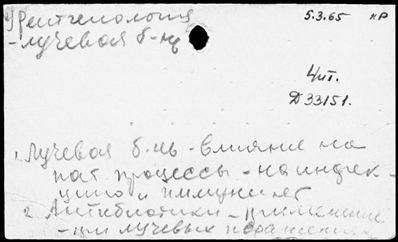 Рентгенология 5.3.65 кР
- лучевая б-нь
Чит.
Д33151.
1. Лучевая б-нь - влияние на
пат процессы - на инфек-
цию и иммунитет
2. Антибиотики - применение
- при лучевых поражениях